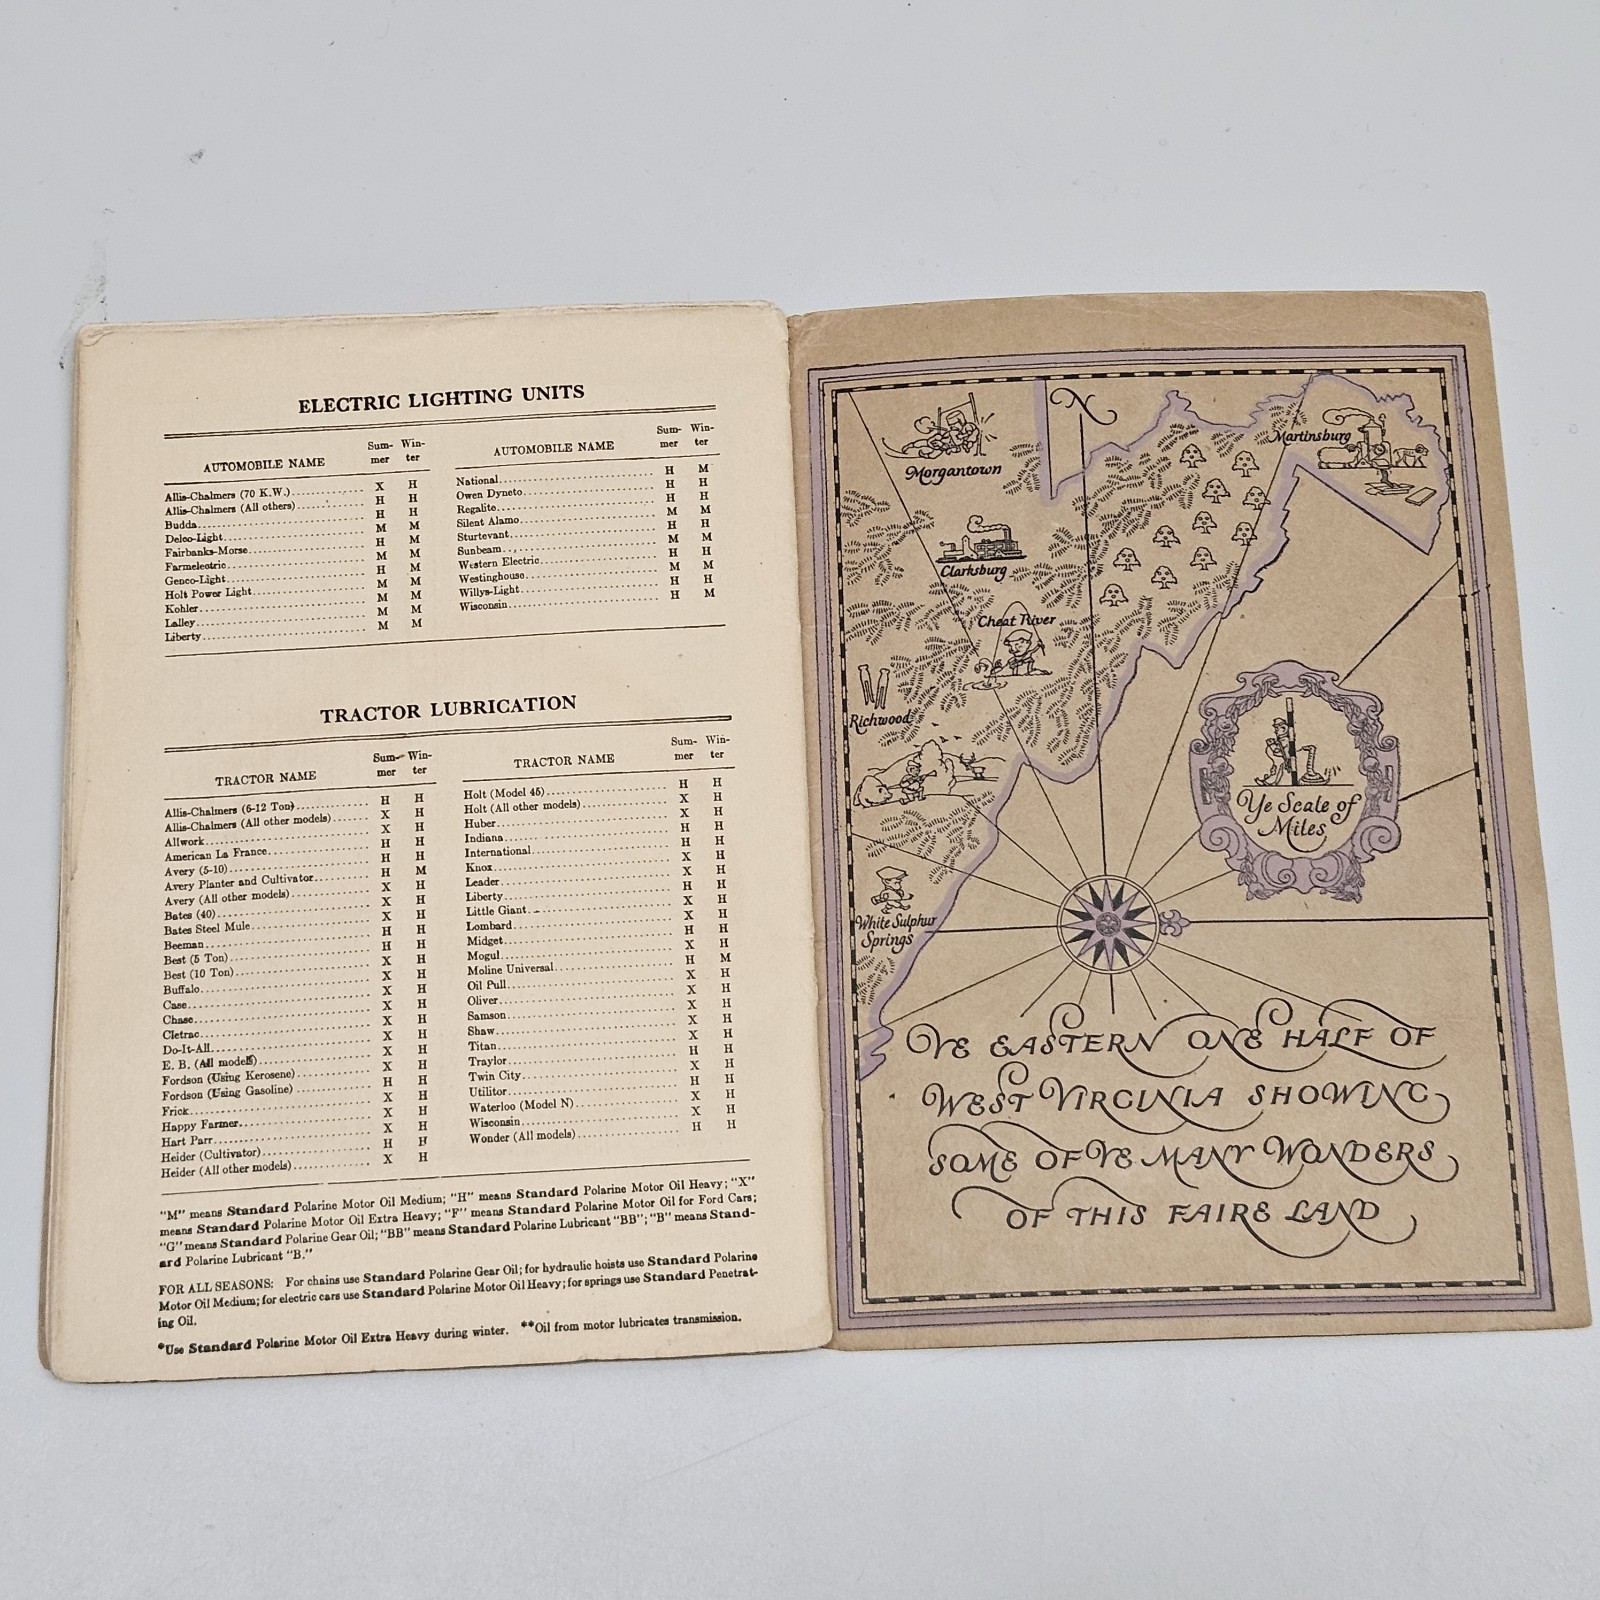 ELECTRIC LIGHTING UNITS
AUTOMOBILE NAME Sum-mer Win-ter
Allis-Chalmers (70 K.W.) X H
Allis-Chalmers (All others) H H
Budda H H
Delco-Light M M
Fairbanks-Morse H M
Farmelectric M M
Genco-Light H M
Holt Power Light M M
Kohler M M
Lalley M M
Liberty M M
AUTOMOBILE NAME Sum-mer Win-ter
National H M
Owen Dyneto H H
Regalite H H
Silent Alamo M M
Sturtevant H H
Sunbeam M M
Western Electric H H
Westinghouse M M
Willys-Light H H
Wisconsin H M
TRACTOR LUBRICATION
TRACTOR NAME Sum-mer Win-ter
Allis-Chalmers (6-12 Ton) H H
Allis-Chalmers (All other models) X H
Allwork X H
American La France H H
Avery (5-10) H H
Avery Planter and Cultivator H M
Avery (All other models) X H
Bates (40) X H
Bates Steel Mule X H
Beeman H H
Best (5 Ton) H H
Best (10 Ton) X H
Buffalo X H
Case X H
Chase X H
Cletrac X H
Do-It-All X H
E. B. (All models) X H
Fordson (Using Kerosene) X H
Fordson (Using Gasoline) H H
Frick X H
Happy Farmer X H
Hart Parr X H
Heider (Cultivator) H H
Heider (All other models) X H
TRACTOR NAME Sum-mer Win-ter
Holt (Model 45) H H
Holt (All other models) X H
Huber X H
Indiana H H
International H H
Knox X H
Leader X H
Liberty H H
Little Giant X H
Lombard H H
Midget H H
Mogul X H
Moline Universal H M
Oil Pull X H
Oliver X H
Samson X H
Shaw X H
Titan X H
Traylor H H
Twin City X H
Utilitor X H
Waterloo (Model N) X H
Wisconsin X H
Wonder (All models) H H
"M" means Standard Polarine Motor Oil Medium; "H" means Standard Polarine Motor Oil Heavy; "X"
means Standard Polarine Motor Oil Extra Heavy; "F" means Standard Polarine Motor Oil for Ford Cars;
"G" means Standard Polarine Gear Oil; "BB" means Standard Polarine Lubricant "BB"; "B" means Stand-
ard Polarine Lubricant "B."
FOR ALL SEASONS: For chains use Standard Polarine Gear Oil; for hydraulic hoists use Standard Polarine
Motor Oil Medium; for electric cars use Standard Polarine Motor Oil Heavy; for springs use Standard Penetrat-
ing Oil.
*Use Standard Polarine Motor Oil Extra Heavy during winter. **Oil from motor lubricates transmission.
N
Morgantown
Martinsburg
Clarksburg
Cheat River
Richwood
White Sulphur
Springs
Ye Scale of
Miles
YE EASTERN ONE HALF OF
WEST VIRGINIA SHOWING
SOME OF YE MANY WONDERS
OF THIS FAIRE LAND